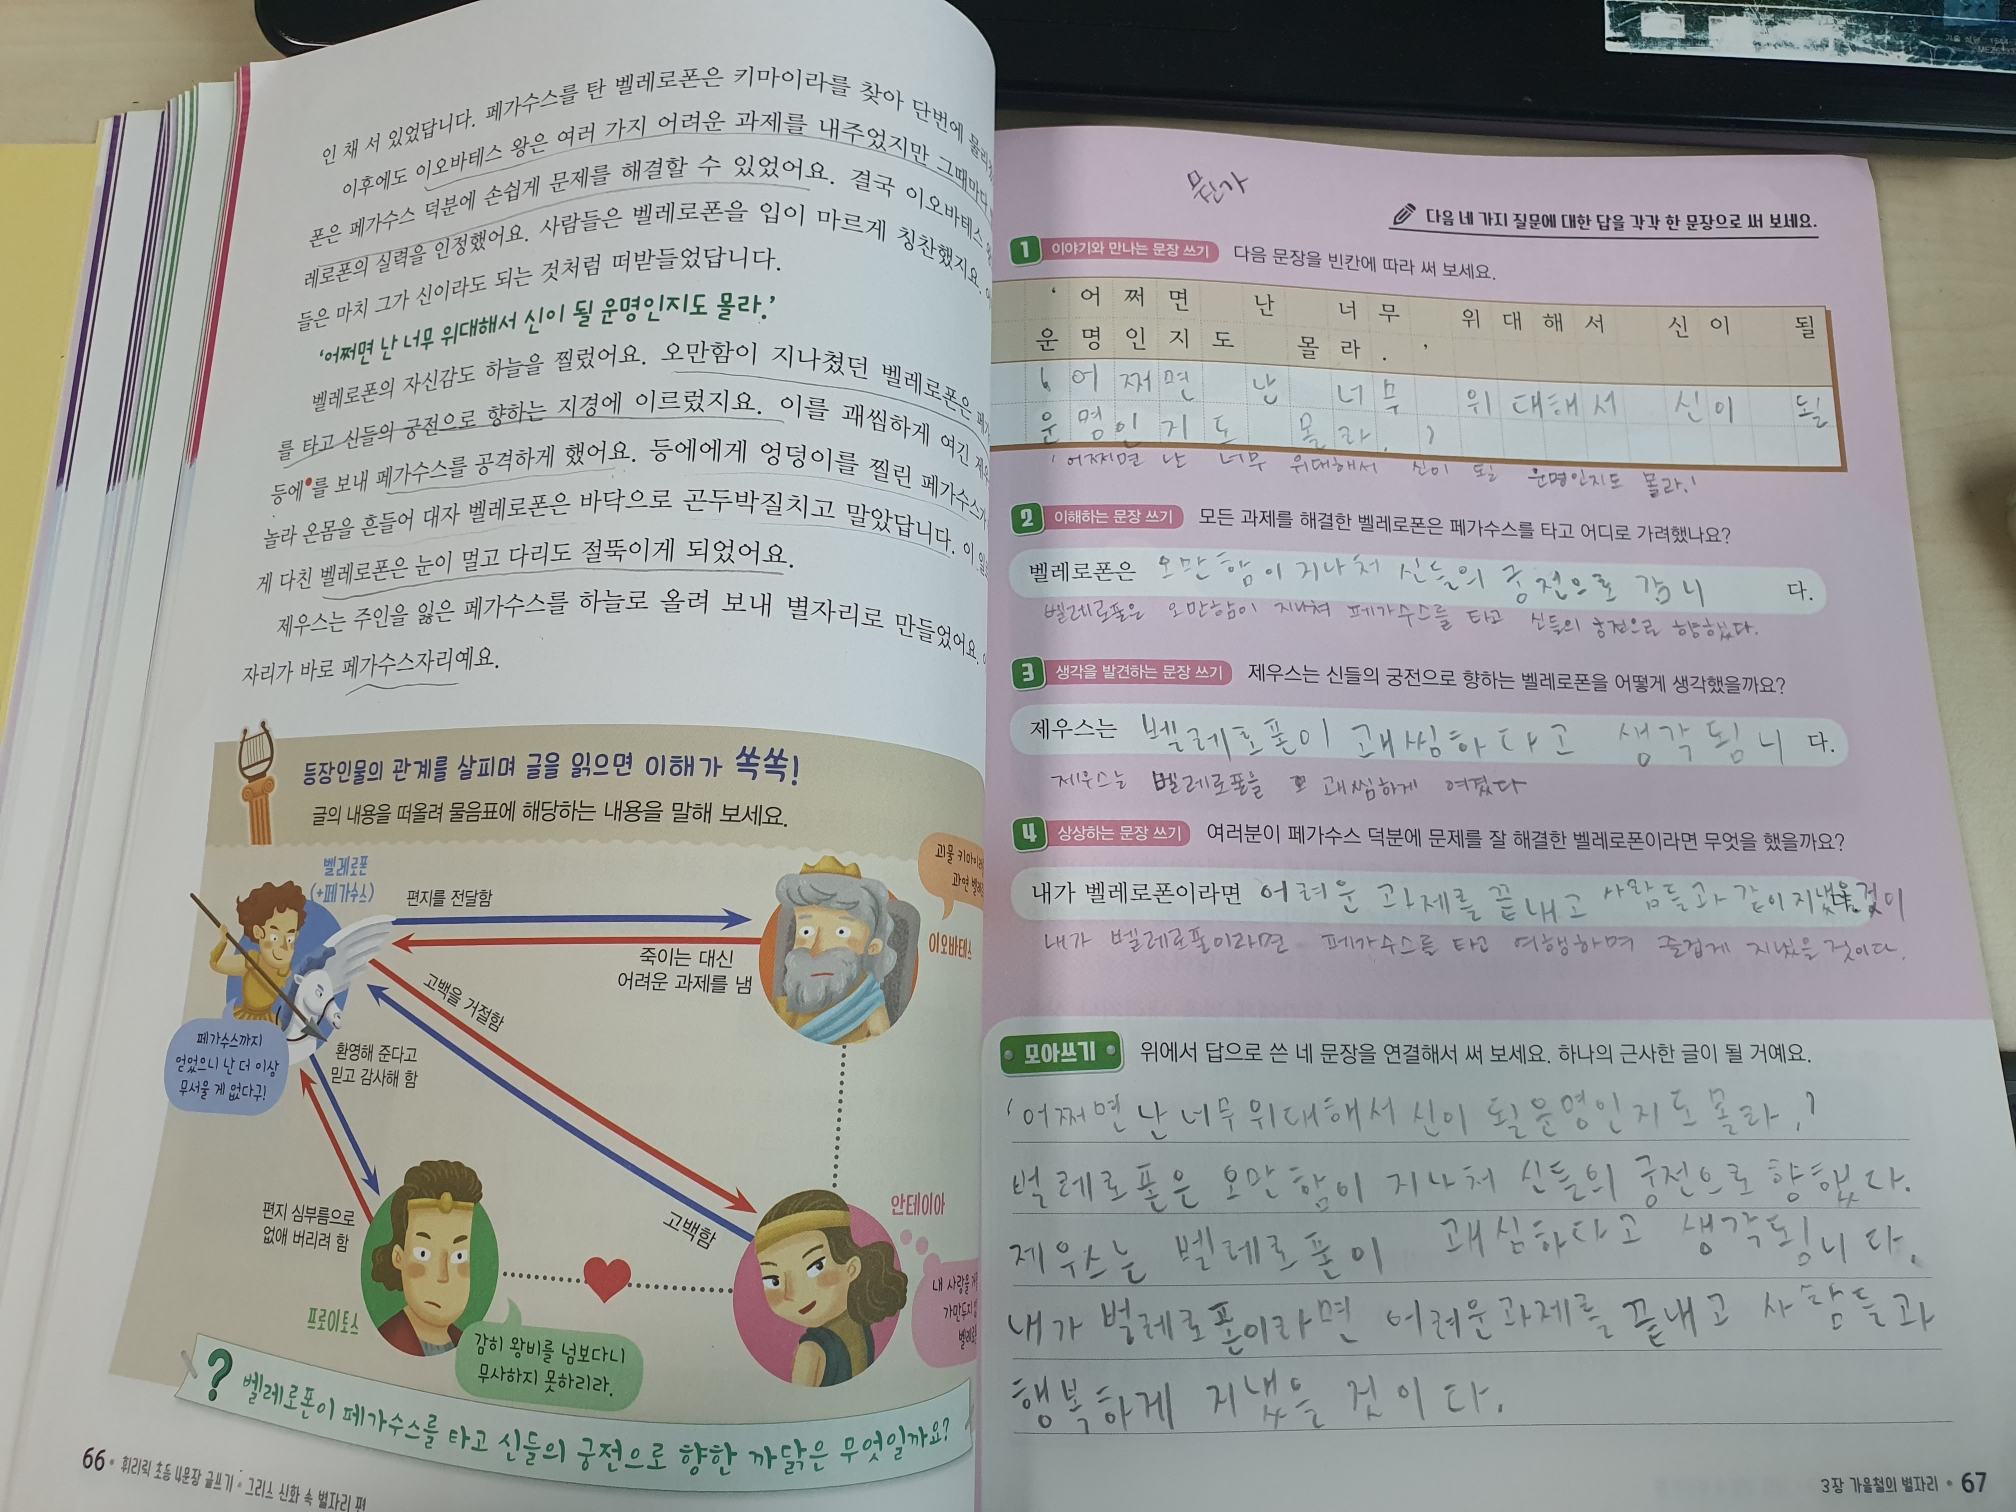 인 채 서 있었답니다. 페가수스를 탄 벨레로폰은 키마이라를 찾아 단번에
이후에도 이오바테스 왕은 여러 가지 어려운 과제를 내주었지만 그때마다
폰은 페가수스 덕분에 손쉽게 문제를 해결할 수 있었어요. 결국 이오바테스
레로폰의 실력을 인정했어요. 사람들은 벨레로폰을 입이 마르게 칭찬했지요.
들은 마치 그가 신이라도 되는 것처럼 떠받들었답니다.
'어쩌면 난 너무 위대해서 신이 될 운명인지도 몰라.'
벨레로폰의 자신감도 하늘을 찔렀어요. 오만함이 지나쳤던 벨레로폰은
를 타고 신들의 궁전으로 향하는 지경에 이르렀지요. 이를 괘씸하게 여긴
등에•를 보내 페가수스를 공격하게 했어요. 등에에게 엉덩이를 찔린 페가수스가
놀라 온몸을 흔들어 대자 벨레로폰은 바닥으로 곤두박질치고 말았답니다. 이
게 다친 벨레로폰은 눈이 멀고 다리도 절뚝이게 되었어요.
제우스는 주인을 잃은 페가수스를 하늘로 올려 보내 별자리로 만들었어요.
자리가 바로 페가수스자리예요.
등장인물의 관계를 살피며 글을 읽으면 이해가 쏙쏙!
글의 내용을 떠올려 물음표에 해당하는 내용을 말해 보세요.
벨레로폰
(+페가수스)
편지를 전달함
죽이는 대신
어려운 과제를 냄
괴물
과연
이오바테스
고백을 거절함
페가수스까지
얻었으니 난 더 이상
무서울 게 없다구!
환영해 준다고
믿고 감사해 함
편지 심부름으로
없애 버리려 함
고백함
안테이아
내 사랑을
프로이토스
감히 왕비를 넘보다니
무사하지 못하리라.
? 벨레로폰이 페가수스를 타고 신들의 궁전으로 향한 까닭은 무엇일까요?
66 • 휘리릭 초등 4문장 글쓰기 • 그리스 신화 속 별자리 편
다음 네 가지 질문에 대한 답을 각각 한 문장으로 써 보세요.
1 이야기와 만나는 문장 쓰기 다음 문장을 빈칸에 따라 써 보세요.
'어쩌면 난 너무 위대해서 신이 될
운명인지도 몰라.'
'어쩌면 난 너무 위대해서 신이 될
운명인지도 몰라.'
'어쩌면 난 너무 위대해서 신이 될 운명인지도 몰라.'
2 이해하는 문장 쓰기 모든 과제를 해결한 벨레로폰은 페가수스를 타고 어디로 가려했나요?
벨레로폰은 오만함이 지나처 신들의 궁전으로 갑니 다.
벨레로폰은 오만함이 지나쳐 페가수스를 타고 신들의 궁전으로 향했다.
3 생각을 발견하는 문장 쓰기 제우스는 신들의 궁전으로 향하는 벨레로폰을 어떻게 생각했을까요?
제우스는 벨레로폰이 괘씸하다고 생각됩니 다.
제우스는 벨레로폰을 괘씸하게 여겼다
4 상상하는 문장 쓰기 여러분이 페가수스 덕분에 문제를 잘 해결한 벨레로폰이라면 무엇을 했을까요?
내가 벨레로폰이라면 어려운 과제를 끝내고 사람들과 같이 지냈을것이
내가 벨레로폰이라면 페가수스를 타고 여행하며 즐겁게 지냈을 것이다.
모아쓰기 위에서 답으로 쓴 네 문장을 연결해서 써 보세요. 하나의 근사한 글이 될 거예요.
'어쩌면 난 너무 위대해서 신이 될 운명인지도 몰라,'
벌레로폰은 오만함이 지나처 신들의 궁전으로 향했다.
제우스는 벨레로폰이 괘심하다고 생각됩니다.
내가 벌레로폰이라면 어려운과제를 끝내고 사람들과
행복하게 지냈을 것이다.
3장 가을철의 별자리 • 67